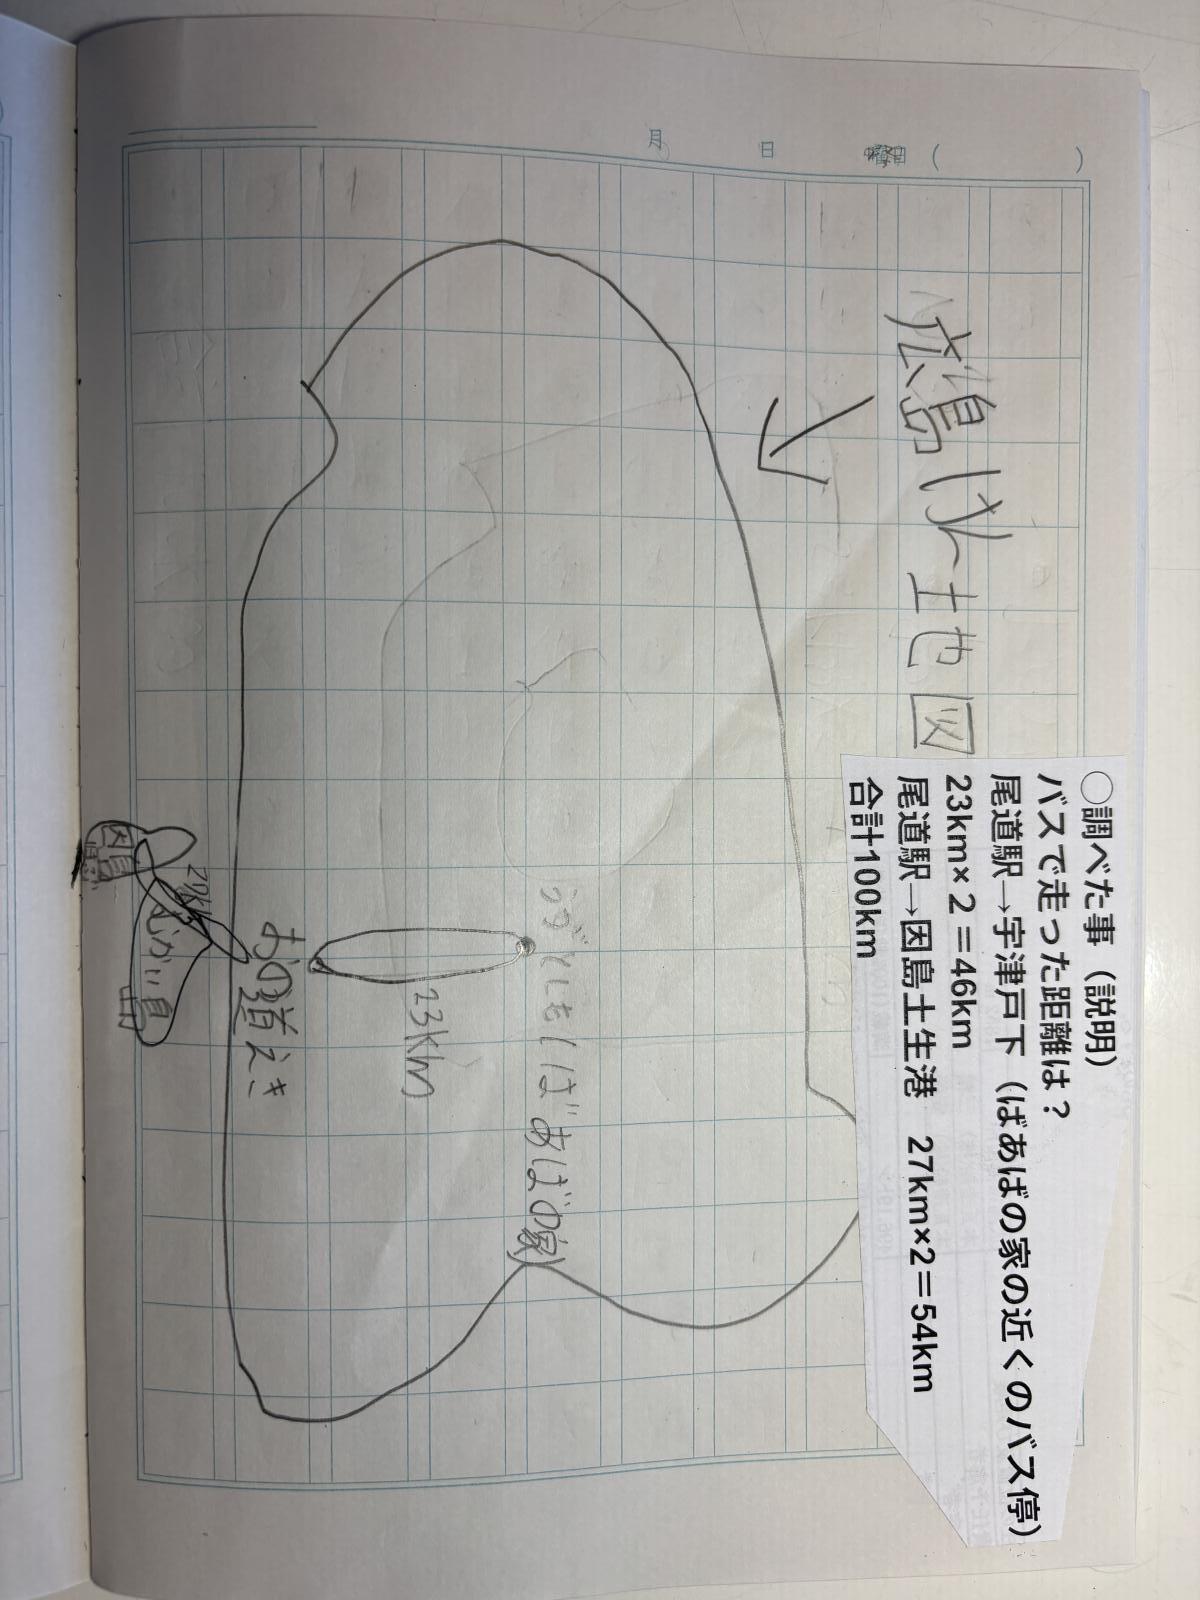 月 日 曜日 ( )
広島けん土地図
○調べた事（説明）
バスで走った距離は？
尾道駅→宇津戸下（ばあばの家の近くのバス停）
23km×2＝46km
尾道駅→因島土生港　27km×2＝54km
合計100km
うづとしも(ばあばの家)
23km
おの道えき
27km
むかい島
因島